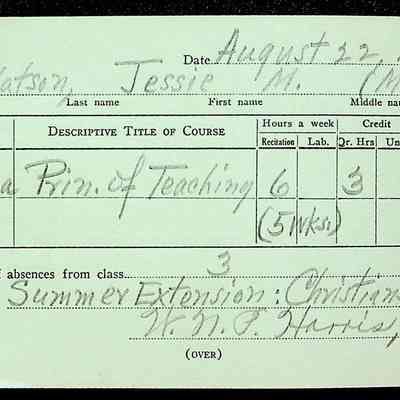 Date August 22,
atson, Jessie M. (M
Last name First name Middle na
DESCRIPTIVE TITLE OF COURSE Hours a week Credit
Recitation Lab. Qr. Hrs Un
a Prin. of Teaching 6 3
(5 wks.)
f absences from class 3
Summer Extension: Christian
W. N. P. Harris,
(OVER)